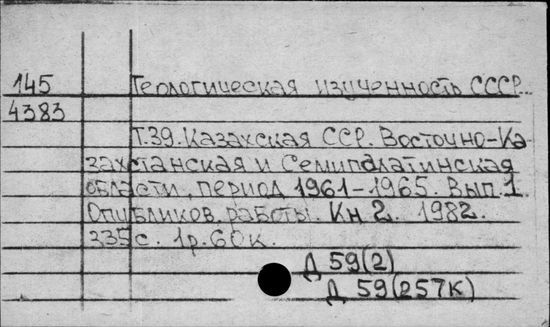 145 Геологическая изученность СССР.
4383
Т.39. Казахская ССР. Восточно-Ка-
захстанская и Семипалатинская
области, период 1961-1965. Вып.1
Опубликов. работы. Кн 2. 1982.
335с. 1р.60к.
Д 59(2)
Д 59(257К)